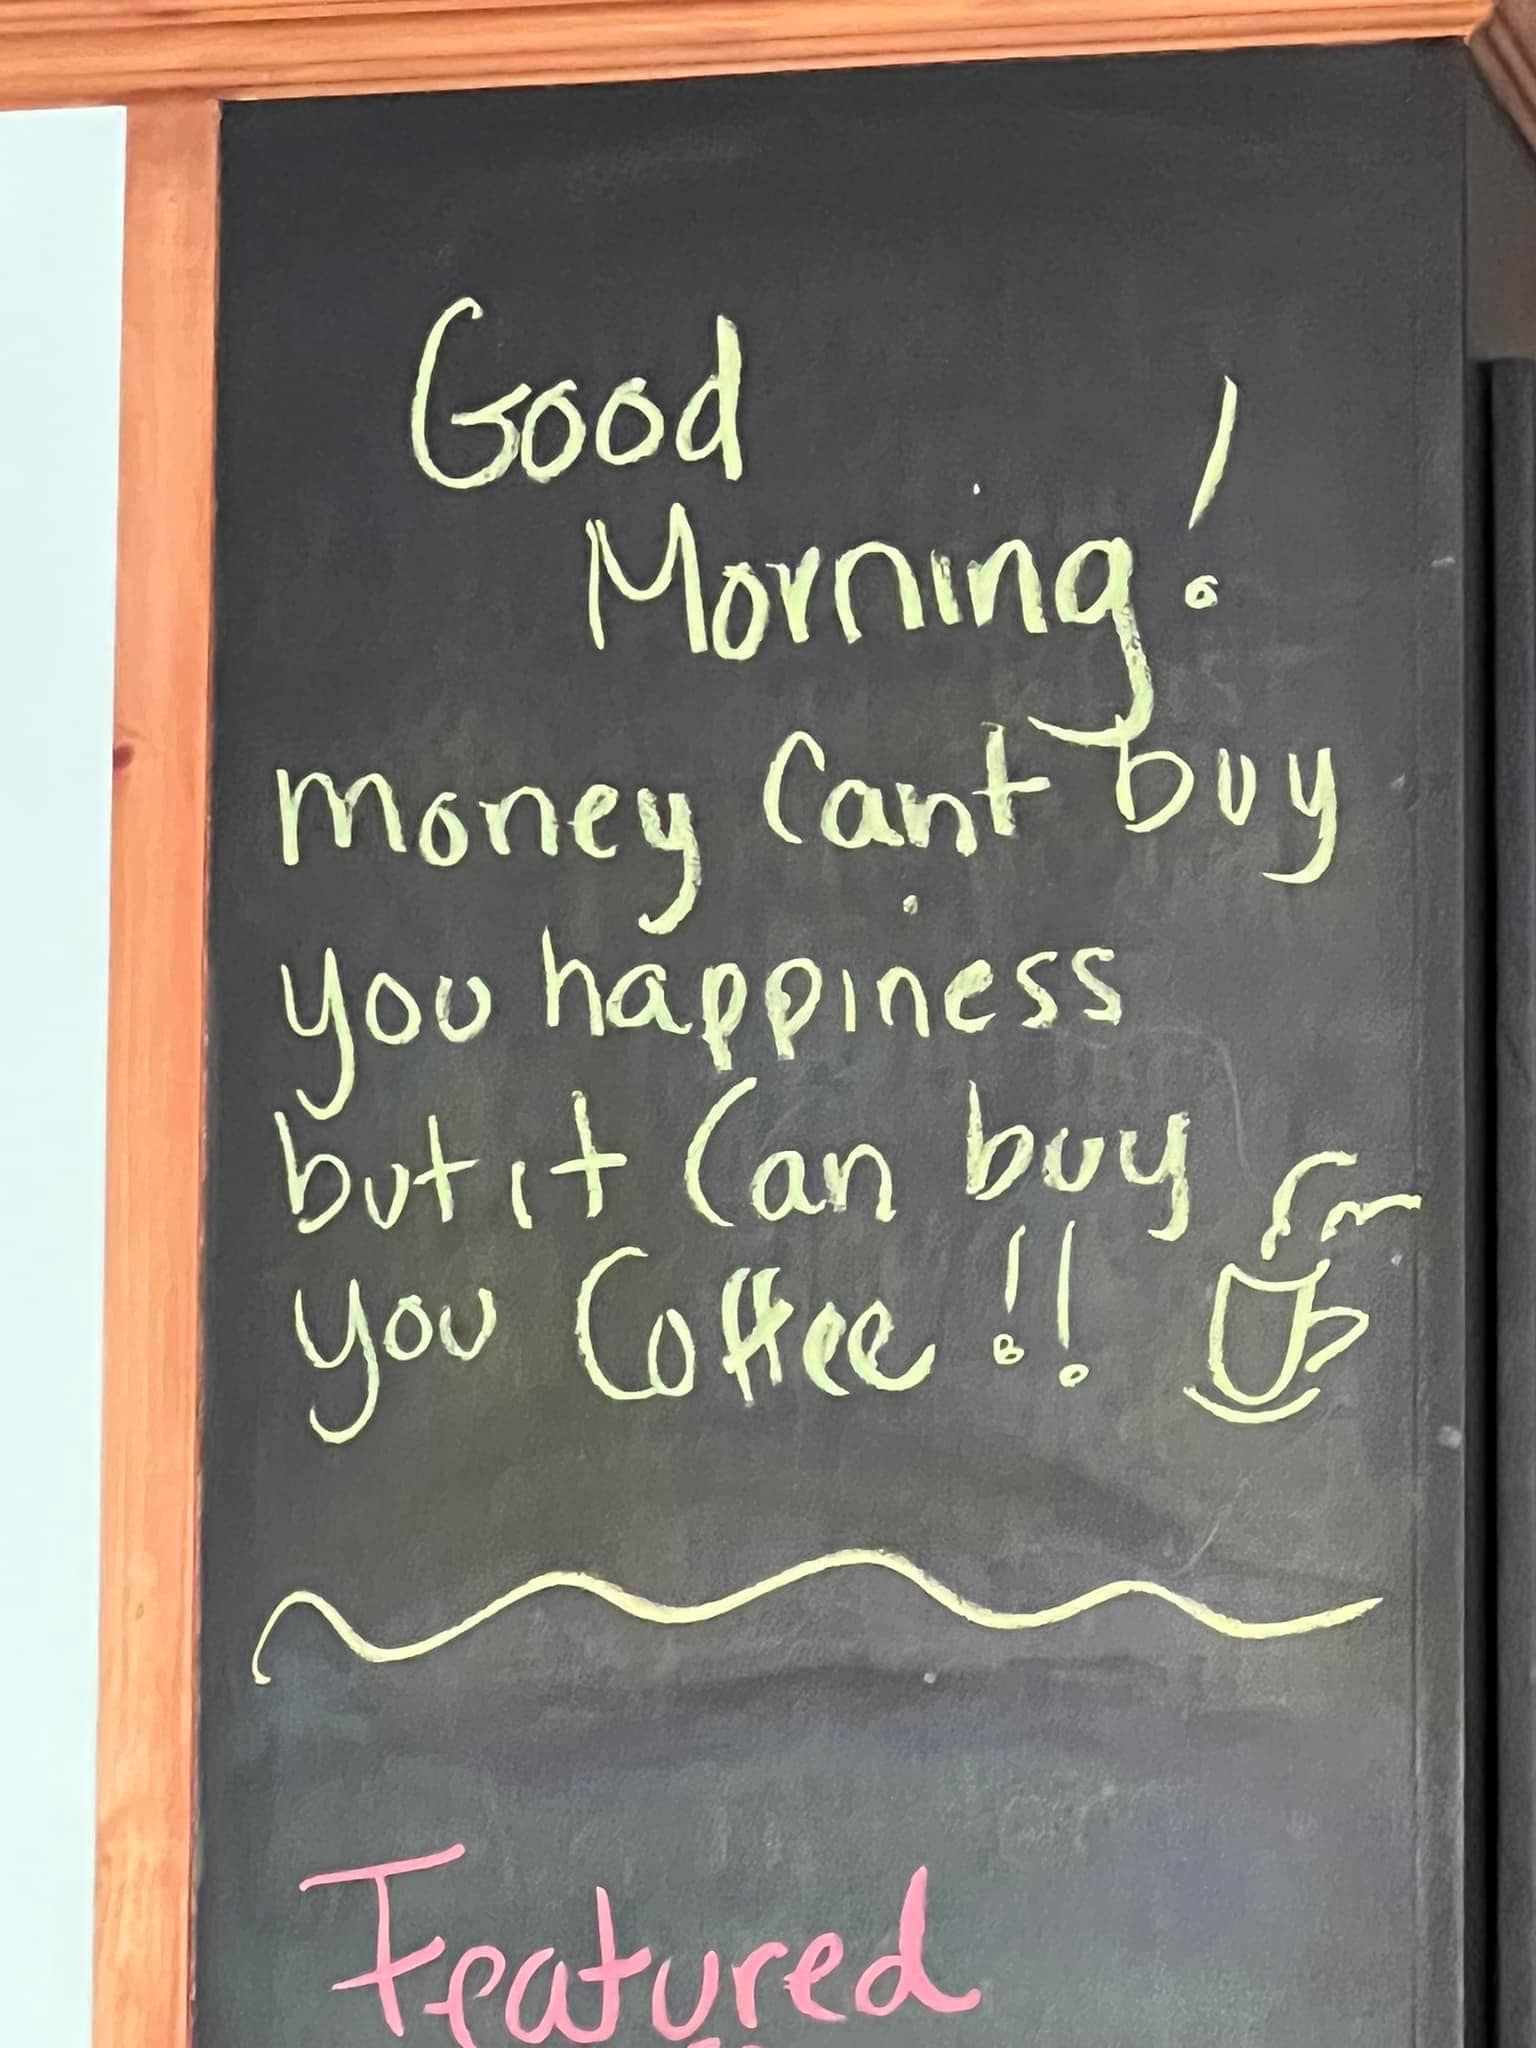 Good
Morning!
money Cant buy
you happiness
but it Can buy
you Coffee!!
Featured